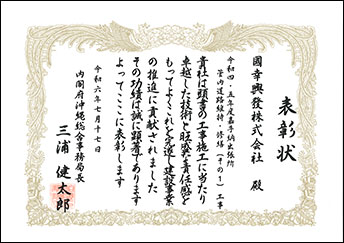 表彰状
國幸興發株式会社 殿
令和四・五年度嘉手納出張所
管内道路維持・修繕(その1)工事
貴社は頭書の工事施工に当たり
卓越した技術と旺盛な責任感を
もってよくこれを完遂し建設事業
の推進に貢献されました
その功績は誠に顕著であります
よってここに表彰します
令和六年七月十七日
内閣府沖縄総合事務局長
三浦 健太郎